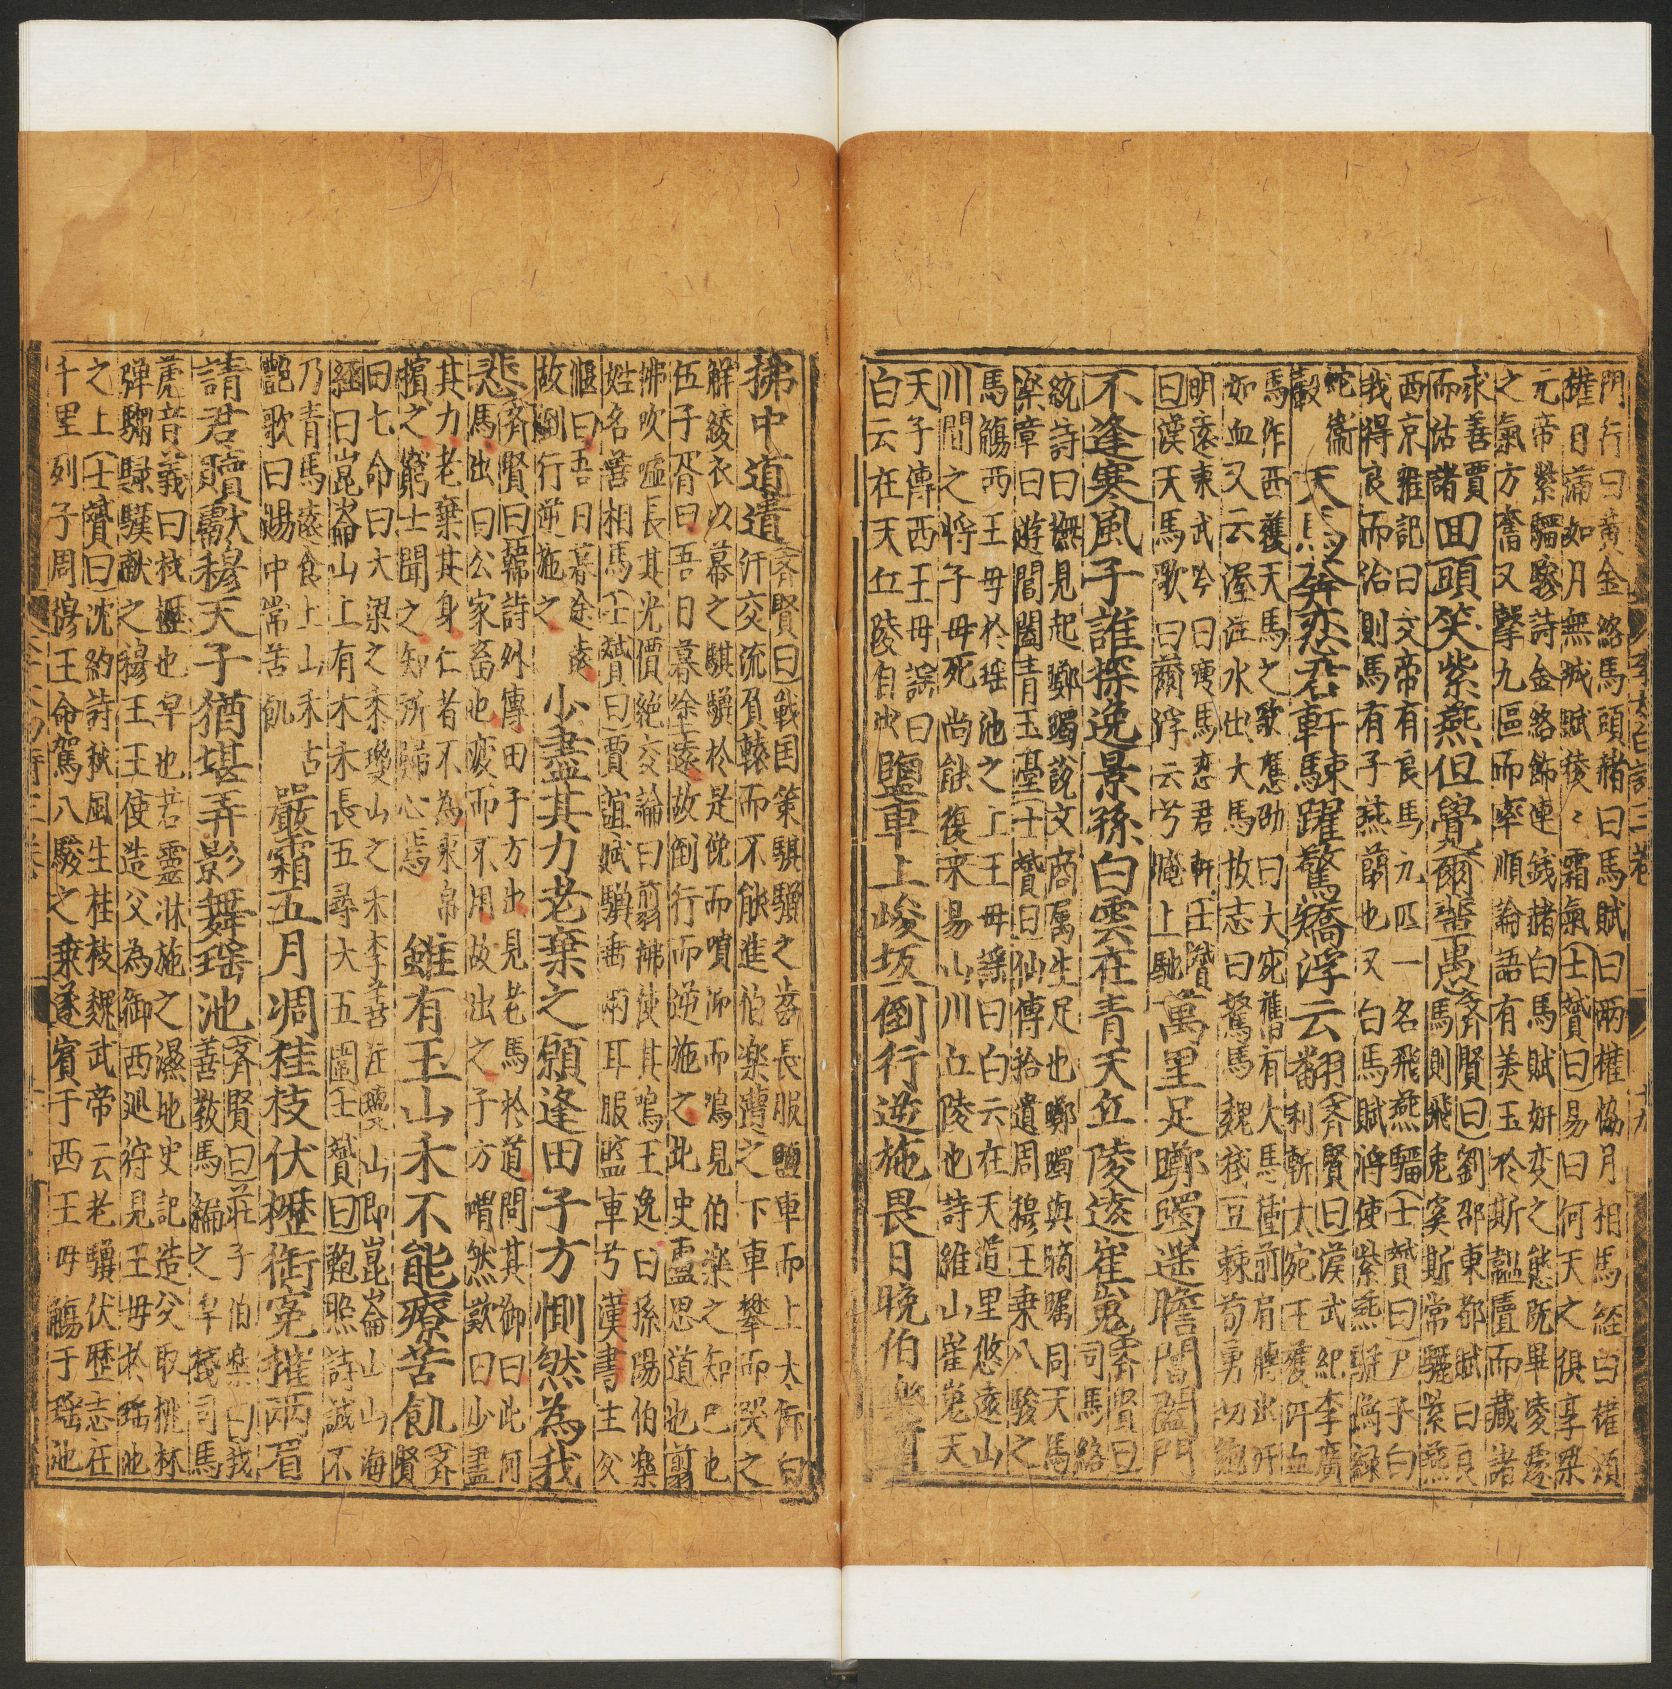 門行曰黃金絡馬頭赭曰馬賦曰兩權恊月相馬經曰權頰
權目蒲如月無城賦稜〻霜氣士贇曰易曰何天之俱享梁
元帝紫騮馬詩金絡飾連錢赭白馬賦妍变之態既畢凌遽
之氣方騫又擊九區而率順論語有美玉於斯韞匵而藏諸
求善賈
而沽諸
回頭笑紫燕但覺爾輩愚
齊賢曰劉邵東都賦曰良
馬則飛兔奚斯常驪紫燕
西京雜記曰文帝有良馬九匹一名飛燕騮士贇曰尸子曰
我得良而治則馬有子燕蘭也又白馬賦將使紫燕騈衡綠
蛇衞
轂
天馬奔恋君軒駷躍驚矯浮云翻
齊賢曰漢武紀李廣
利斬大宛王獲汗血
馬作西獲天馬之歌應劭曰大宛舊有天馬種前肩膊出汗
如血又云渥洼水出大馬抜志曰驚馬魏棧豆棘茍勇切鮑
明遠東武吟曰瘦馬恋君軒士贇
曰漢天馬歌曰蕭浮云兮晻上馳
萬里足躑躅遥瞻閶闔門
不逢寒風子誰採逸景孫白雲在青天丘陵遠崔嵬
齊賢曰
司馬絡
統詩曰撫見起躑躅說文商属生足也躑躅與蹢䠱同天馬
楽章曰遊閶闔青玉臺士贇曰仙傳拾遺周穆王乗八駿之
馬觴西王母於瑶池之上王母謡曰白云在天道里悠遠山
川間之將子毋死尚能復来易山川丘陵也詩維山崔嵬天
天子傳西王母謡曰
白云在天丘陵自出
鹽車上峻坂倒行逆施畏日晚伯樂剪
拂中道遺
齊賢曰戰国策騏驥之齒長服鹽車而上太行白
汗交流負轅而不能進伯楽遭之下車攀而哭之
解綾衣以幕之騏驥於是俛而噴仰而鳴見伯楽之知己也
伍子胥曰吾日暮途遠故倒行而逆施之此史盧思道也剪
拂吹嘘長其光價絶交論曰翦拂使其鳴王逸曰孫陽伯楽
姓名善相馬士贇曰賈誼賦驥垂兩耳服監車兮漢書主父
偃曰吾日暮途遠
故倒行逆施之
少盡其力老棄之願逢田子方惻然為我
悲
齊賢曰韓詩外傳田子方出見老馬於道問其御曰此何
馬出曰公家畜也疲而不用故出之子方喟然歎曰少盡
其力老棄其身仁者不為来帛
擯之窮士聞之知所歸心焉
雖有玉山禾不能療苦飢
齊賢
曰七命曰大梁之黍瓊山之禾李善注瓊山即崑崙山山海
經曰崑崙山上有木禾長五尋大五圍士贇曰鮑照詩誠不
乃青馬遠食上山禾古
艷歌曰賜中常苦飢
嚴霜五月凋桂枝伏櫪銜寃摧兩眉
請君贖獻穆天子猶堪弄影舞瑶池
齊賢曰莊子伯楽曰我
善敎馬編之皁棧司馬
彪音義曰枝櫪也皁也若霊牀施之濕地史記造父取桃林
彈騮騄驥献之穆王王使造父為御西廵狩見王母於瑶池
之上士贇曰沈約詩秋風生桂枝魏武帝云老驥伏歷志在
千里列子周穆王命駕八駿之乗遂賓于西王母觴于瑶池